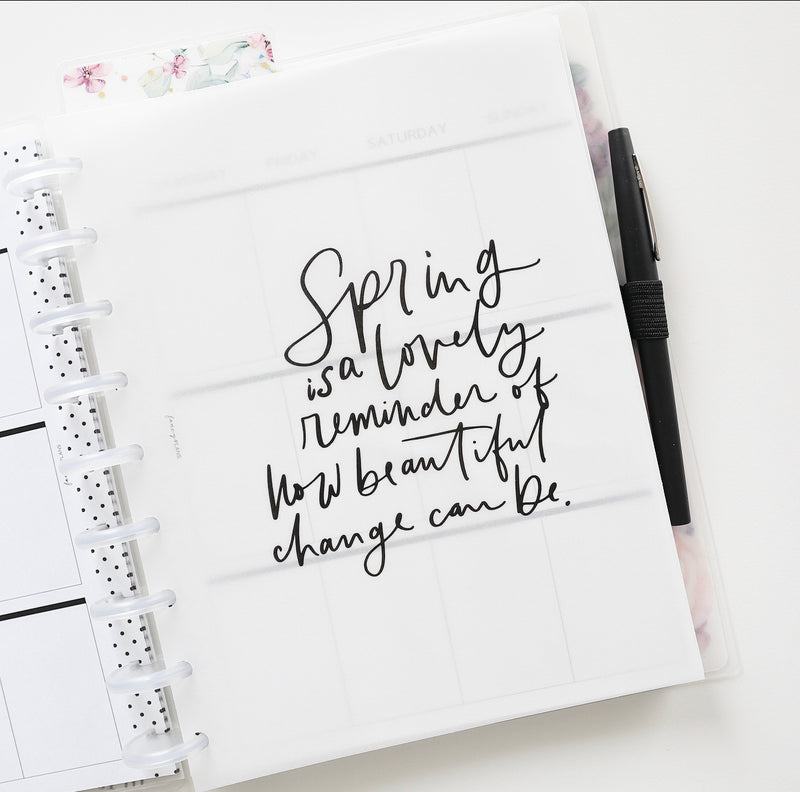 THURSDAY FRIDAY SATURDAY SUNDAY
Spring
is a lovely
reminder of
how beautiful
change can be.